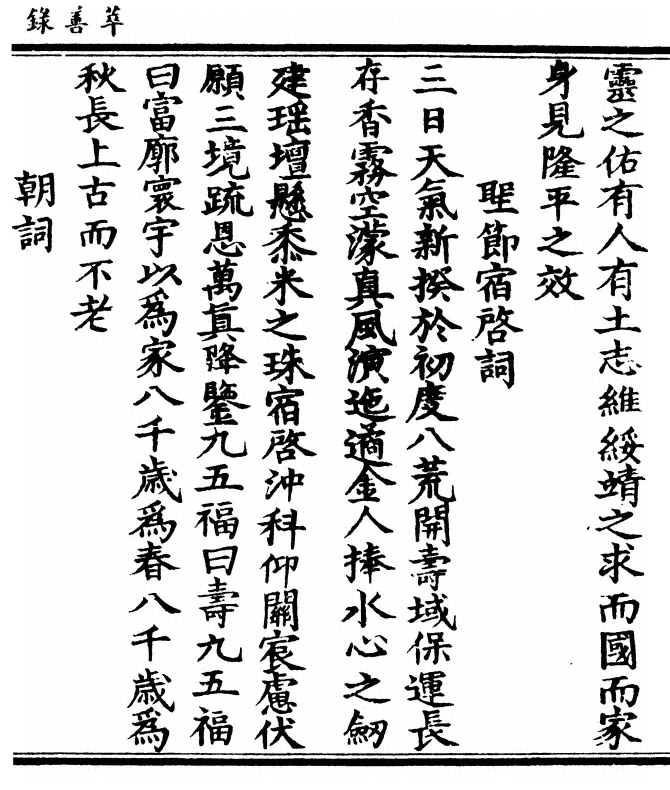 萃善錄
靈之佑有人有土志維綏靖之求而國而家
身見隆平之效
聖節宿啓詞
三日天氣新揆於初度八荒開壽域保運長
存香霧空濛真風演迤適金人捧水心之劒
建瑶壇懸黍米之珠宿啓沖科仰關宸慮伏
願三境䟽恩萬真降鑒九五福曰壽九五福
曰富廓寰宇以爲家八千歲爲春八千歲爲
秋長上古而不老
朝詞